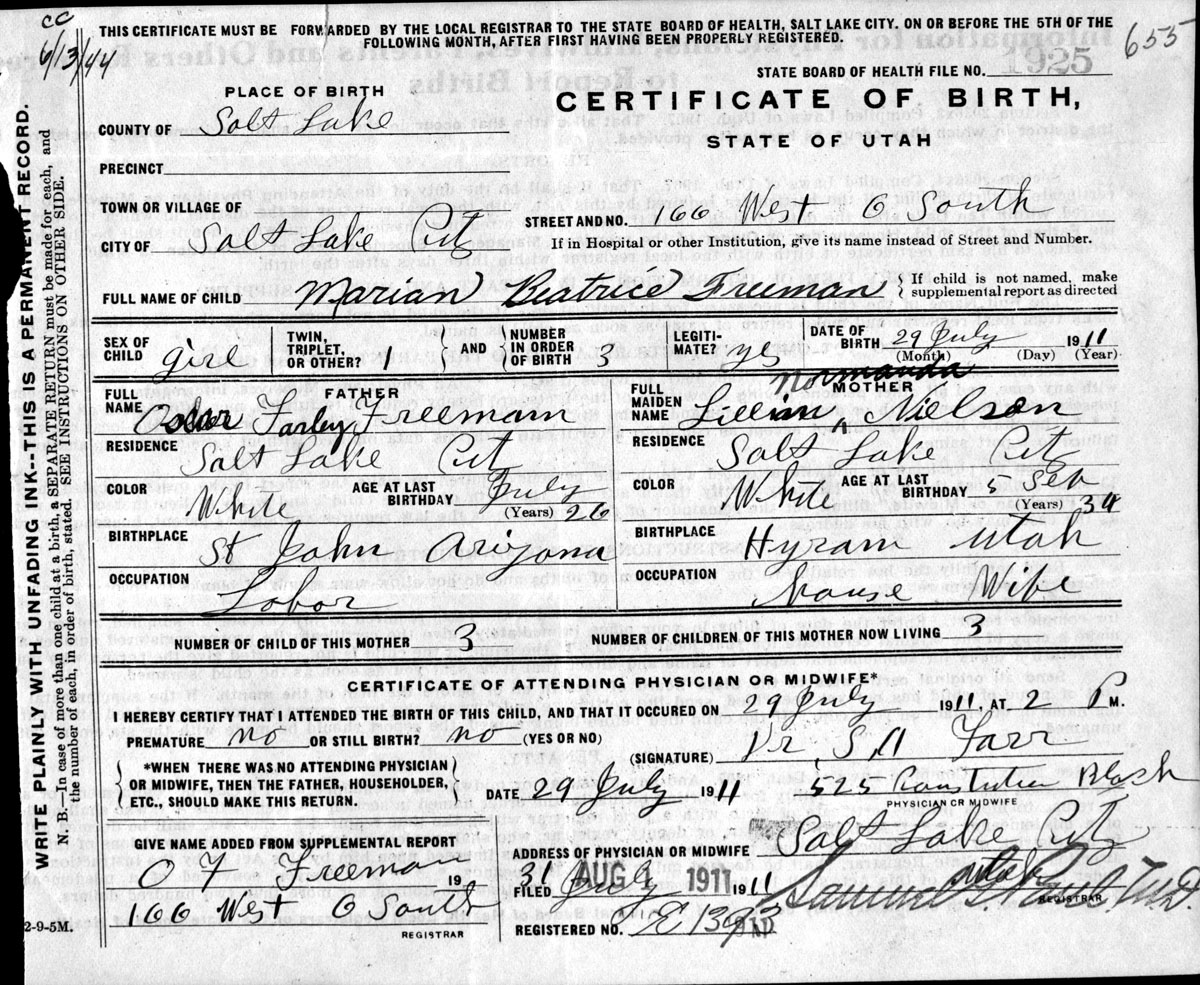 cc
6/13/44
THIS CERTIFICATE MUST BE FORWARDED BY THE LOCAL REGISTRAR TO THE STATE BOARD OF HEALTH, SALT LAKE CITY, ON OR BEFORE THE 5TH OF THE
FOLLOWING MONTH, AFTER FIRST HAVING BEEN PROPERLY REGISTERED.
655
STATE BOARD OF HEALTH FILE NO. 1925
PLACE OF BIRTH
CERTIFICATE OF BIRTH,
STATE OF UTAH
COUNTY OF Salt Lake
PRECINCT
TOWN OR VILLAGE OF
STREET AND NO. 166 West 6 South
CITY OF Salt Lake Cit
If in Hospital or other Institution, give its name instead of Street and Number.
FULL NAME OF CHILD Marian Beatrice Freeman { If child is not named, make
supplemental report as directed
SEX OF CHILD girl
TWIN, TRIPLET, OR OTHER? 1 } AND { NUMBER IN ORDER OF BIRTH 3
LEGITI-MATE? yes
DATE OF BIRTH 29 July 1911
(Month) (Day) (Year)
FATHER
FULL NAME Farley Freeman
RESIDENCE Salt Lake Cit
COLOR White AGE AT LAST BIRTHDAY July 26 (Years)
BIRTHPLACE St John Arizona
OCCUPATION Labor
MOTHER
FULL MAIDEN NAME Lillian Normanda Nielson
RESIDENCE Salt Lake Cit
COLOR White AGE AT LAST BIRTHDAY 5 Feb 34 (Years)
BIRTHPLACE Hyram Utah
OCCUPATION House Wife
NUMBER OF CHILD OF THIS MOTHER 3
NUMBER OF CHILDREN OF THIS MOTHER NOW LIVING 3
CERTIFICATE OF ATTENDING PHYSICIAN OR MIDWIFE*
I HEREBY CERTIFY THAT I ATTENDED THE BIRTH OF THIS CHILD, AND THAT IT OCCURED ON 29 July 1911, AT 2 P M.
PREMATURE no OR STILL BIRTH? no (YES OR NO)
(SIGNATURE) Dr S. Farr
{ *WHEN THERE WAS NO ATTENDING PHYSICIAN
OR MIDWIFE, THEN THE FATHER, HOUSEHOLDER,
ETC., SHOULD MAKE THIS RETURN. }
DATE 29 July 1911
525 Constution Block
PHYSICIAN OR MIDWIFE
GIVE NAME ADDED FROM SUPPLEMENTAL REPORT
ADDRESS OF PHYSICIAN OR MIDWIFE Salt Lake Cit
Utah
O F Freema 19
166 West 6 South
REGISTRAR
31
FILED July 1911
AUG 1 1911
Samuel G. Paul M.D.
REGISTRAR
REGISTERED NO. E 1393
2-9-5M.
WRITE PLAINLY WITH UNFADING INK--THIS IS A PERMANENT RECORD.
N. B.—In case of more than one child at a birth, a SEPARATE RETURN must be made for each, and
the number of each, in order of birth, stated. SEE INSTRUCTIONS ON OTHER SIDE.